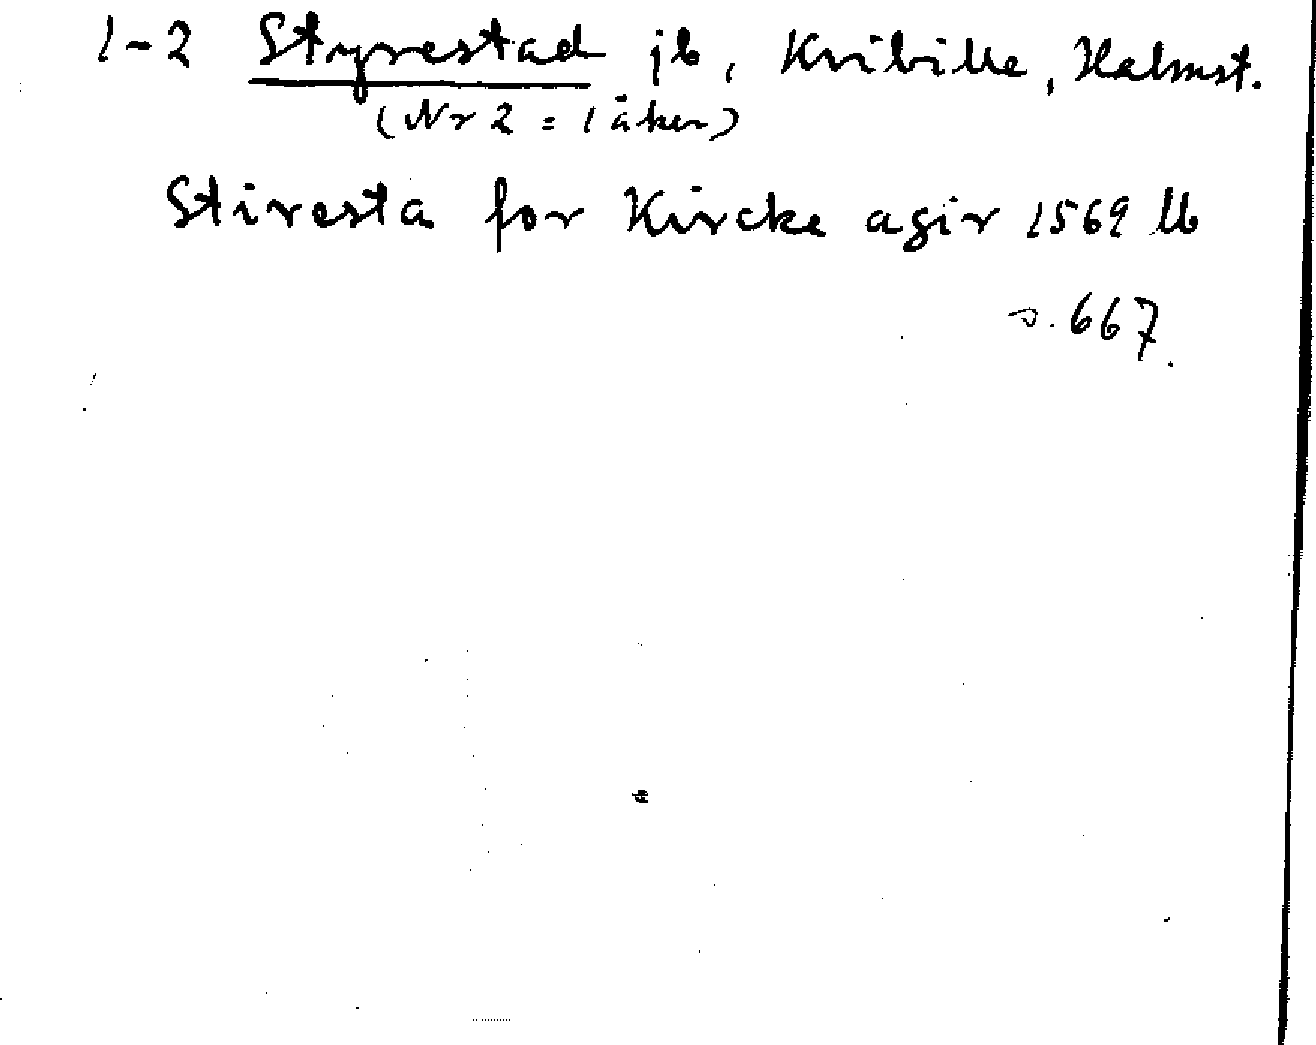 1-2 Styrestad jb, Kvibille, Halmst.
(Nr 2 = 1 åker)
Stiresta for Kircke agir 1569 lb
s. 667.